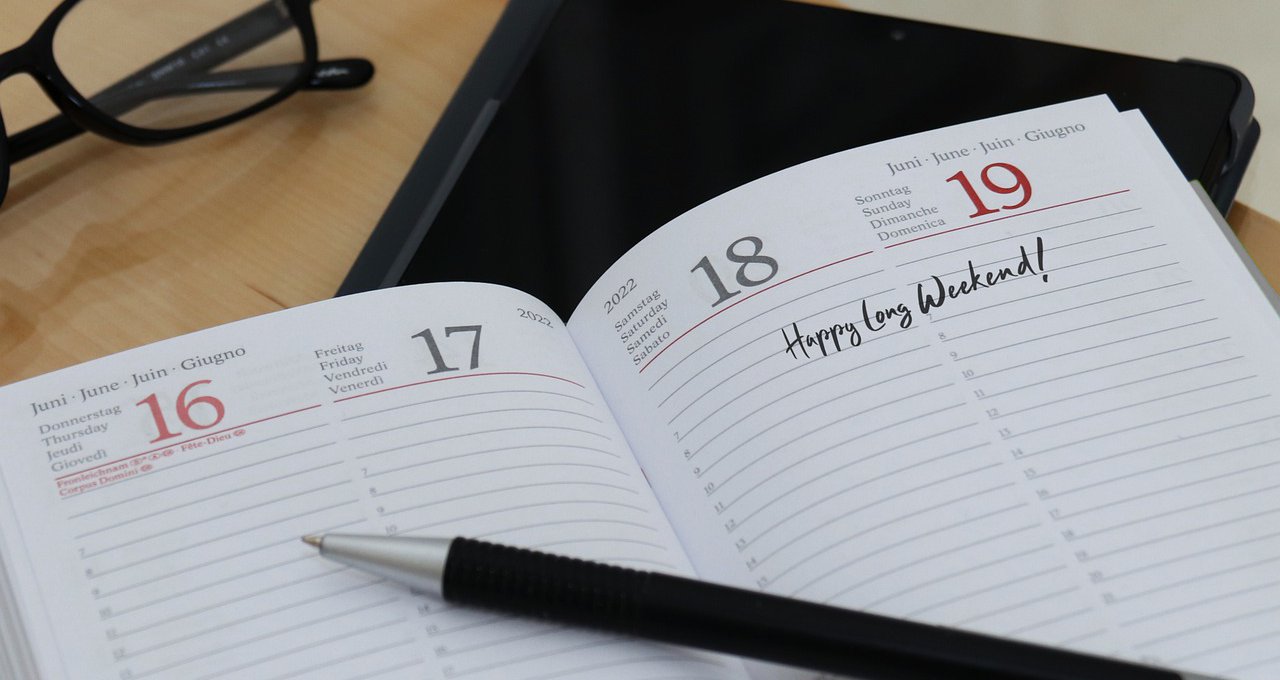 Juni · June · Juin · Giugno
Donnerstag
Thursday
Jeudi
Giovedì
16
Fronleichnam
Fête-Dieu
Corpus Domini
Freitag
Friday
Vendredi
Venerdì
17
2022
7
8
7
8
9
10
2022
Samstag
Saturday
Samedi
Sabato
18
Juni · June · Juin · Giugno
Sonntag
Sunday
Dimanche
Domenica
19
Happy Long Weekend!
7
8
9
10
11
12
13
14
15
8
9
10
11
12
13
14
15
16
17
18
19
20